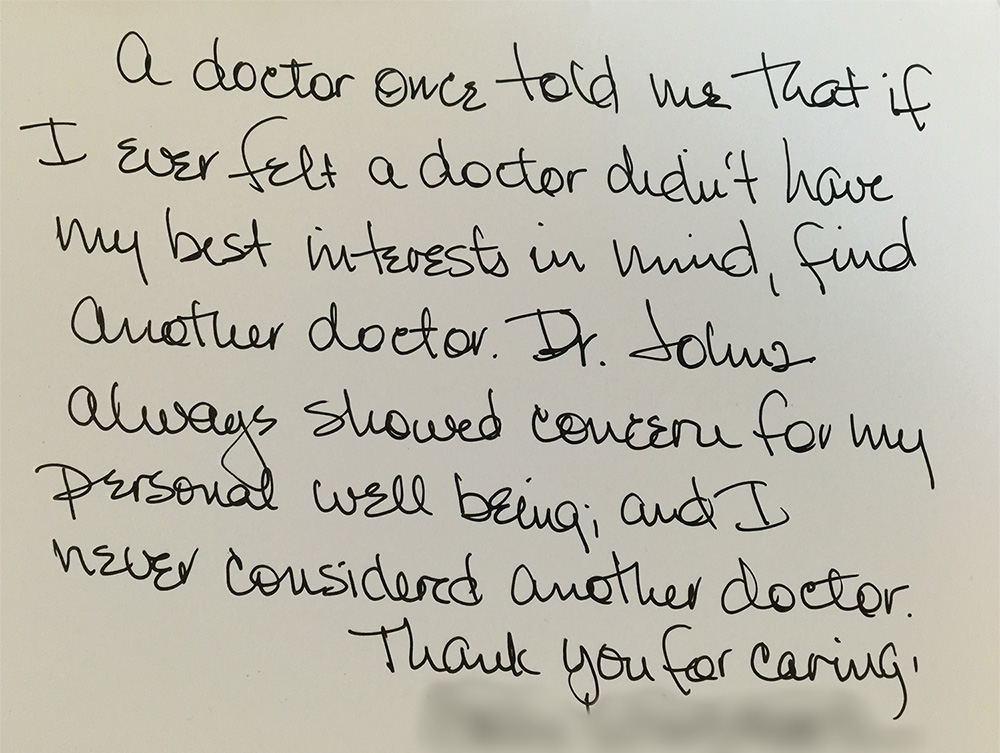 A doctor once told me that if
I ever felt a doctor didn't have
my best interests in mind, find
another doctor. Dr. Johns
always showed concern for my
personal well being; and I
never considered another doctor.
Thank you for caring.